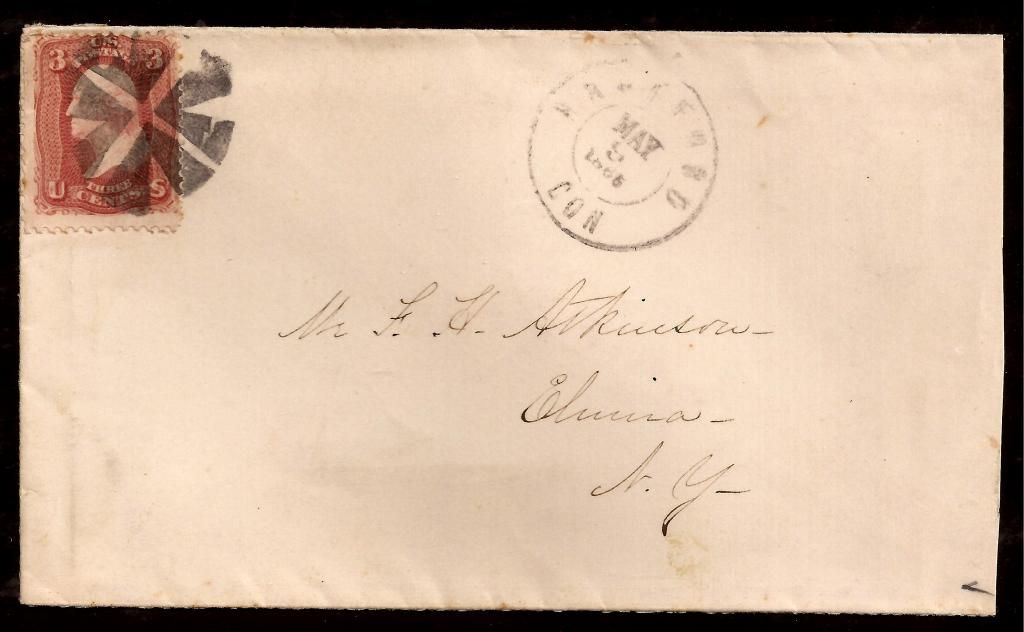 3 U.S. 3
U THREE S
CENTS
HARTFORD CON
MAY
5
1866
Mr F. H. Atkinson
Elmira
N. Y.